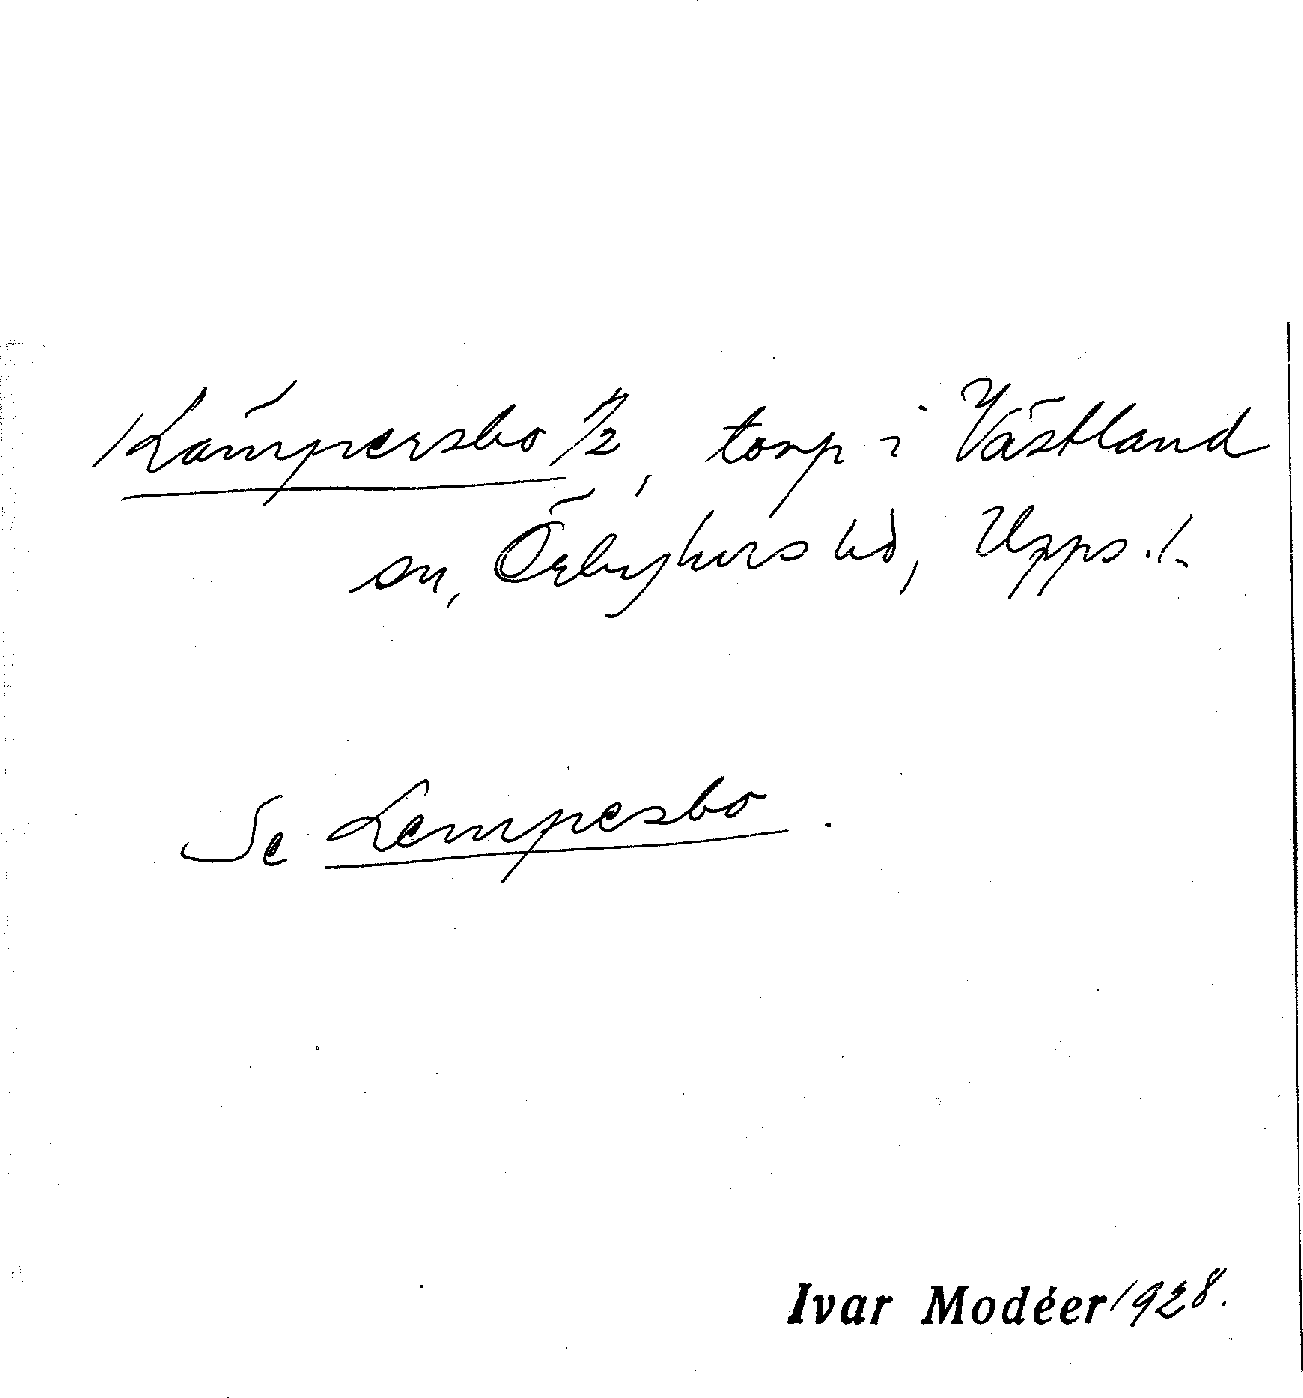 Kämpersbo ½, torp i Västland
sn, Örbyhus hd, Upps. l.
Se Lempesbo.
Ivar Modéer 1928.